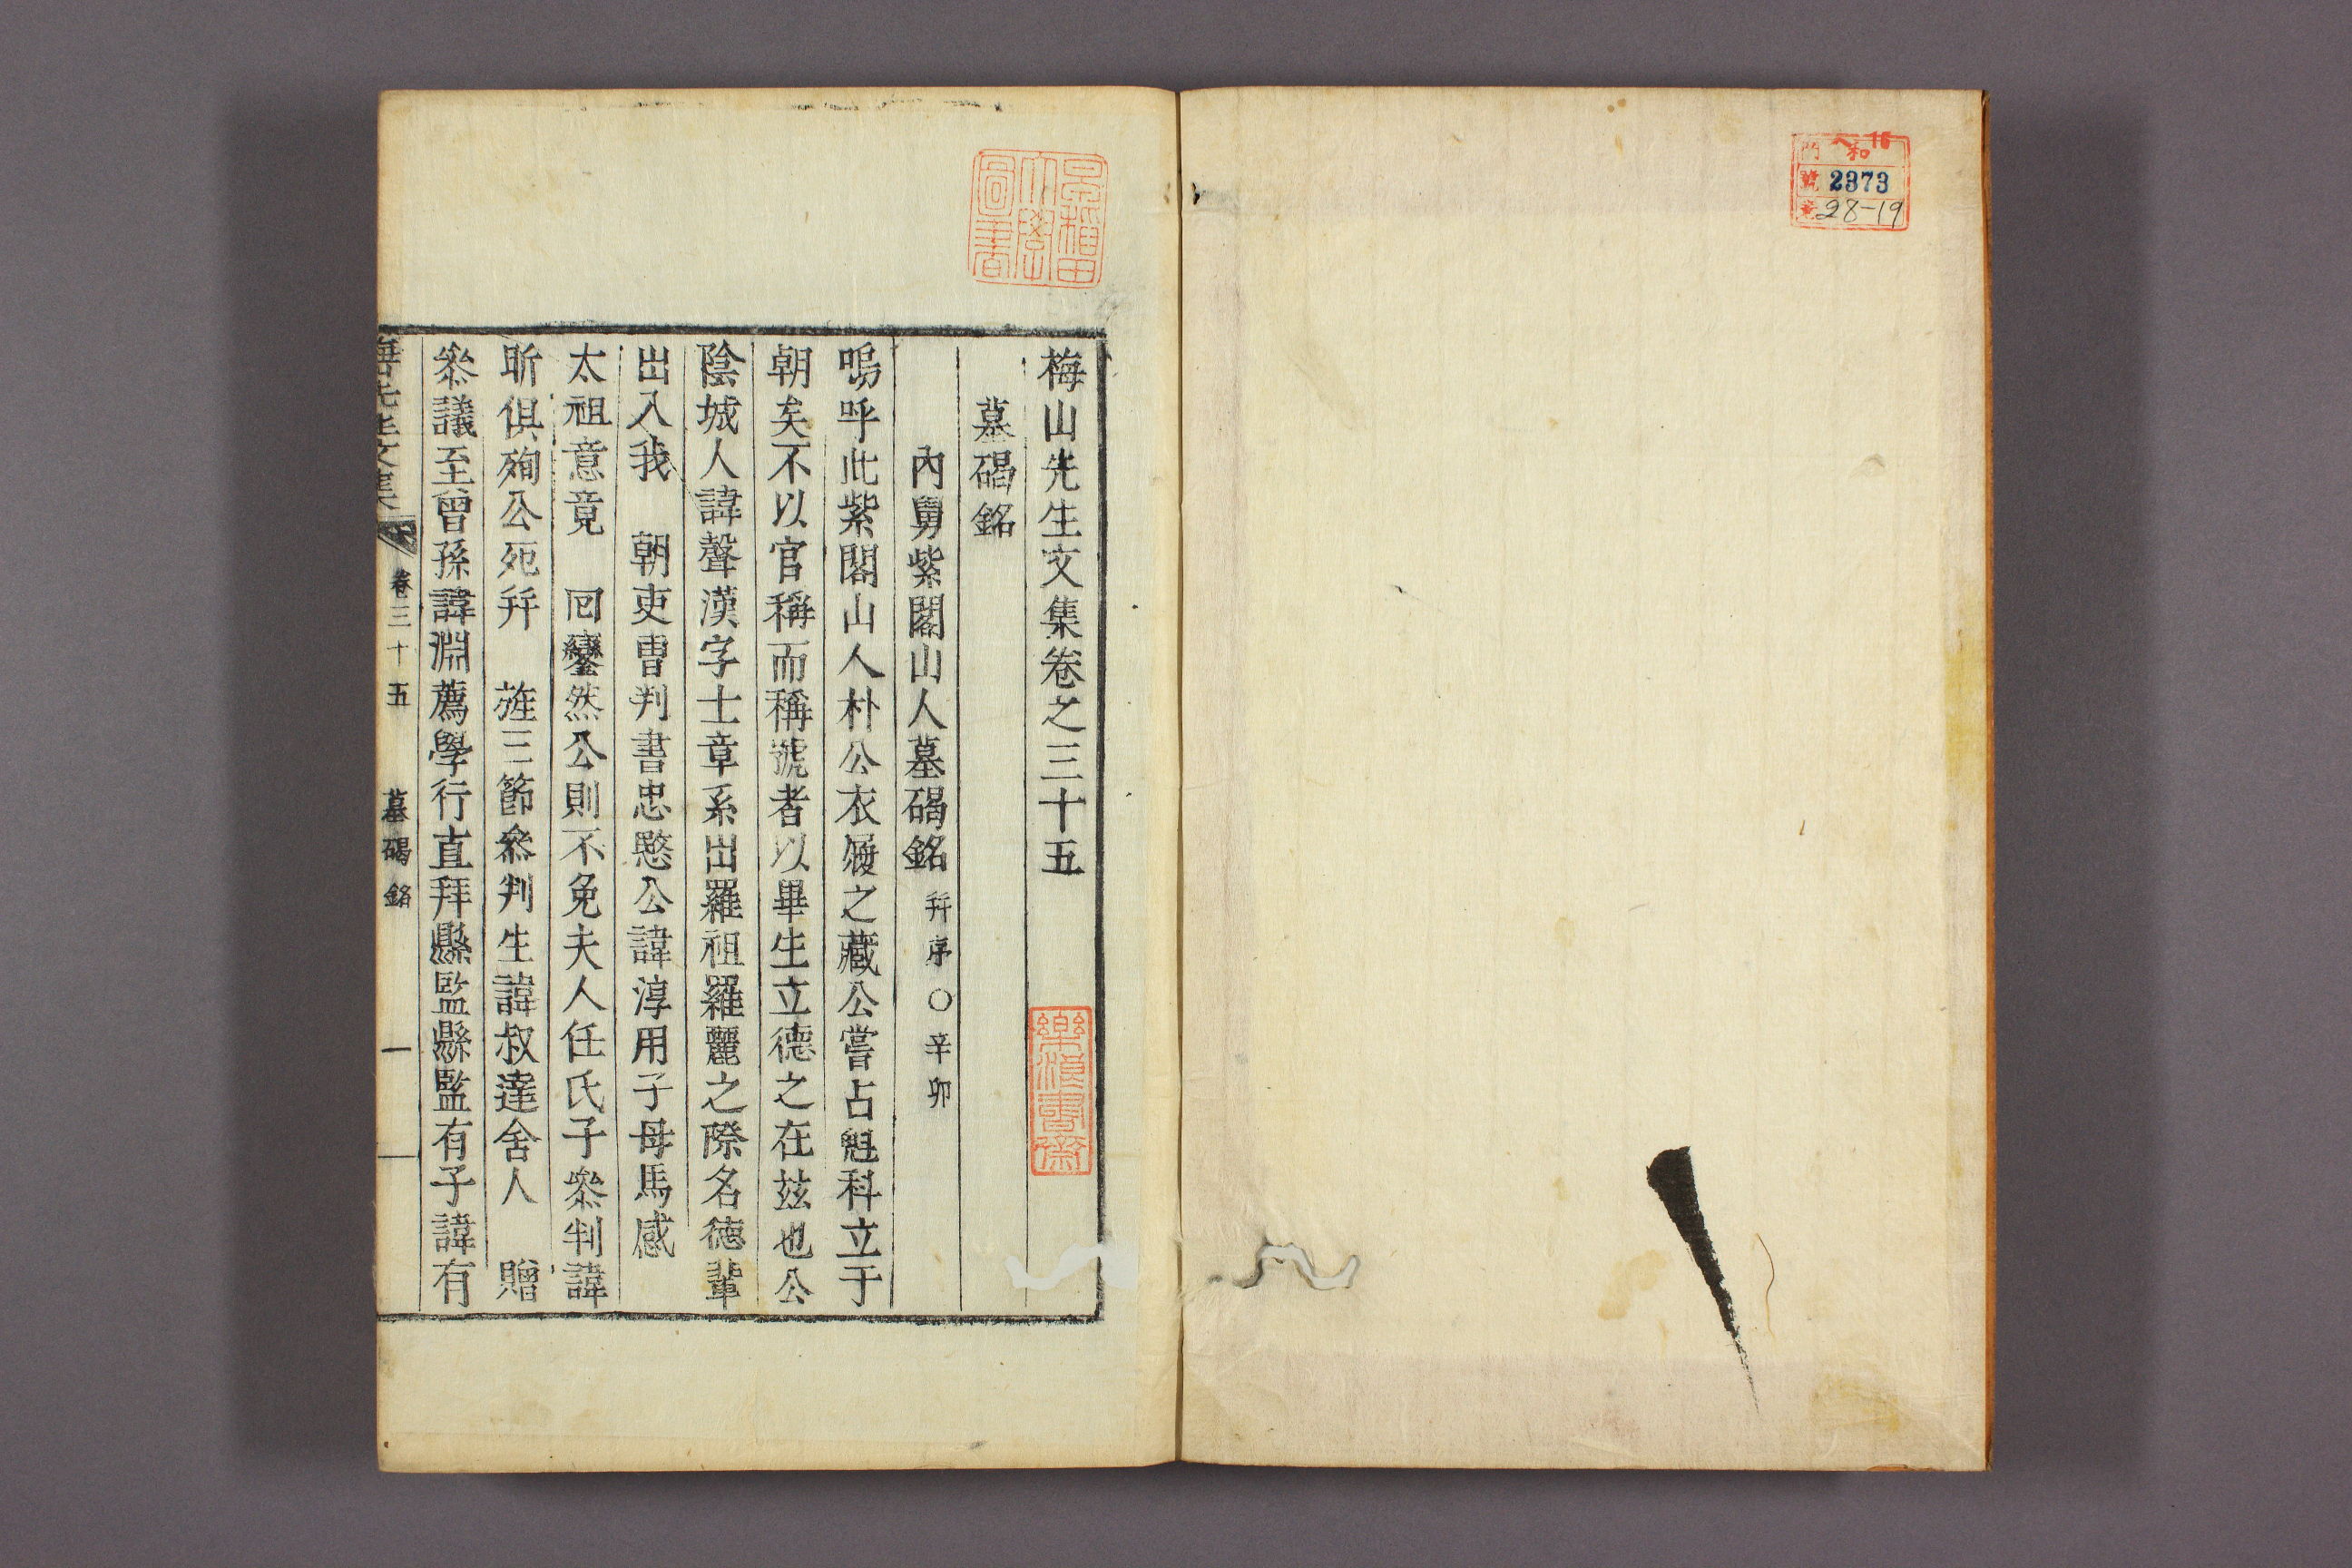 門 ヘ 16 和
號 2373
卷 28-19
早稲田
大學
圖書
梅山先生文集卷之三十五
樂浪書齋
墓碣銘
內舅紫閣山人墓碣銘 幷序○辛卯
嗚呼此紫閣山人朴公衣履之藏公嘗占魁科立于
朝矣不以官稱而稱號者以畢生立德之在玆也公
陰城人諱聲漢字士章系出羅祖羅麗之際名德輩
出入我 朝吏曹判書忠愍公諱淳用子母馬感
太祖意竟 回鑾然公則不免夫人任氏子叅判諱
昕俱殉公死幷 旌三節叅判生諱叔達舍人 贈
叅議至曾孫諱淵薦學行直拜縣監縣監有子諱有
先生文集 卷三十五 墓碣銘 一